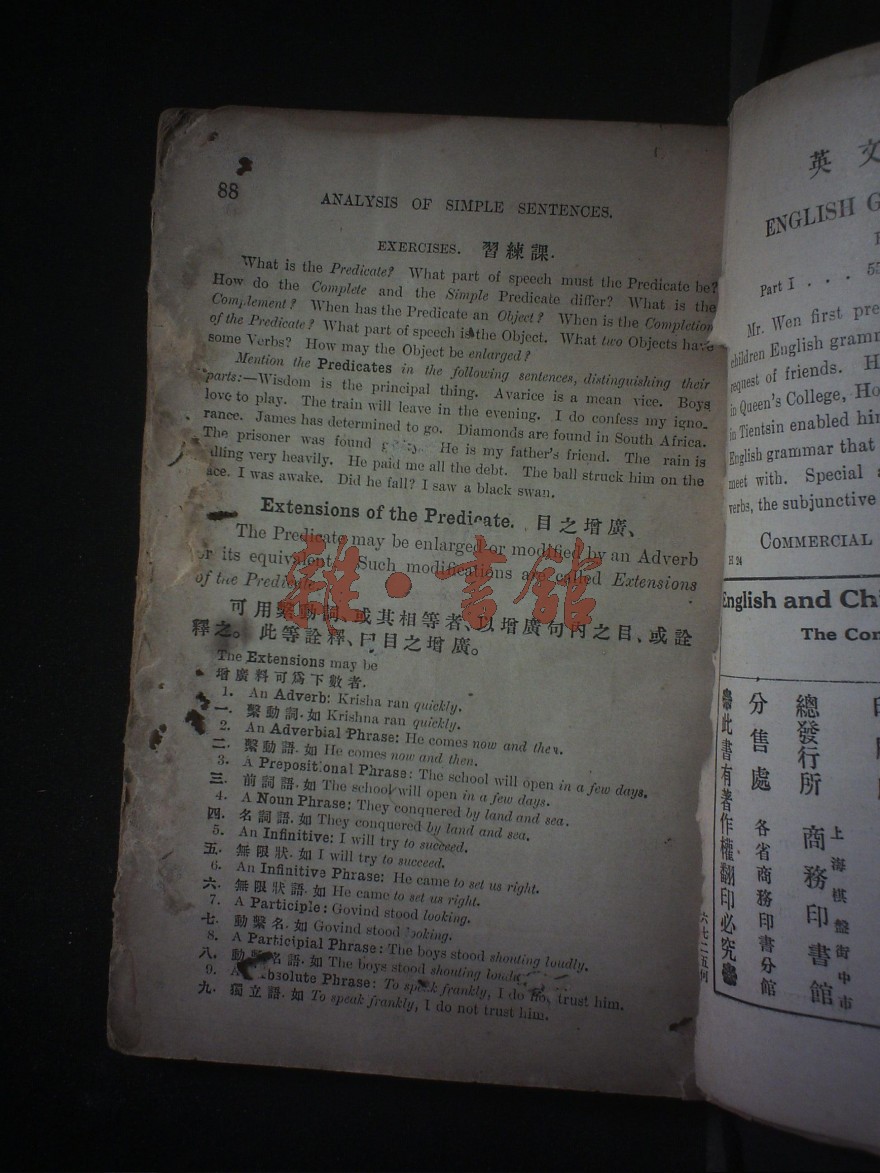 88
ANALYSIS OF SIMPLE SENTENCES.
EXERCISES. 習練課.
What is the Predicate? What part of speech must the Predicate be?
How do the Complete and the Simple Predicate differ? What is the
Complement? When has the Predicate an Object? When is the Completion
of the Predicate? What part of speech is the Object. What two Objects have
some Verbs? How may the Object be enlarged?
Mention the Predicates in the following sentences, distinguishing their
parts:—Wisdom is the principal thing. Avarice is a mean vice. Boys
love to play. The train will leave in the evening. I do confess my igno-
rance. James has determined to go. Diamonds are found in South Africa.
The prisoner was found He is my father's friend. The rain is
lling very heavily. He paid me all the debt. The ball struck him on the
ace. I was awake. Did he fall? I saw a black swan.
Extensions of the Predicate. 目之增廣、
The Predicate may be enlarged or modified by an Adverb
or its equivalent. Such modifications are called Extensions
of the Predicate.
可用繫動詞、或其相等者、以增廣句內之目、或詮
釋之。此等詮釋、曰目之增廣。
The Extensions may be
增廣料可爲下數者.
1. An Adverb: Krisha ran quickly.
一. 繫動詞.如 Krishna ran quickly.
2. An Adverbial Phrase: He comes now and then.
二. 繫動語.如 He comes now and then.
3. A Prepositional Phrase: The school will open in a few days.
三. 前詞語.如 The school will open in a few days.
4. A Noun Phrase: They conquered by land and sea.
四. 名詞語.如 They conquered by land and sea.
5. An Infinitive: I will try to succeed.
五. 無限狀.如 I will try to succeed.
6. An Infinitive Phrase: He came to set us right.
六. 無限狀語.如 He came to set us right.
7. A Participle: Govind stood looking.
七. 動繫名.如 Govind stood looking.
8. A Participial Phrase: The boys stood shouting loudly.
八. 動繫名語.如 The boys stood shouting loudly
9. Absolute Phrase: To speak frankly, I do not trust him.
九. 獨立語.如 To speak frankly, I do not trust him.
雜·書館
英文
ENGLISH G
Part I . . . 55
Mr. Wen first pre
children English gramm
request of friends. H
in Queen's College, Ho
in Tientsin enabled him
English grammar that
meet with. Special a
verbs, the subjunctive
H 24
COMMERCIAL
English and Chi
The Con
總發行所 上海棋盤街中市
商務印書館
分售處 各省商務印書分館
此書有著作權翻印必究
六七二五何